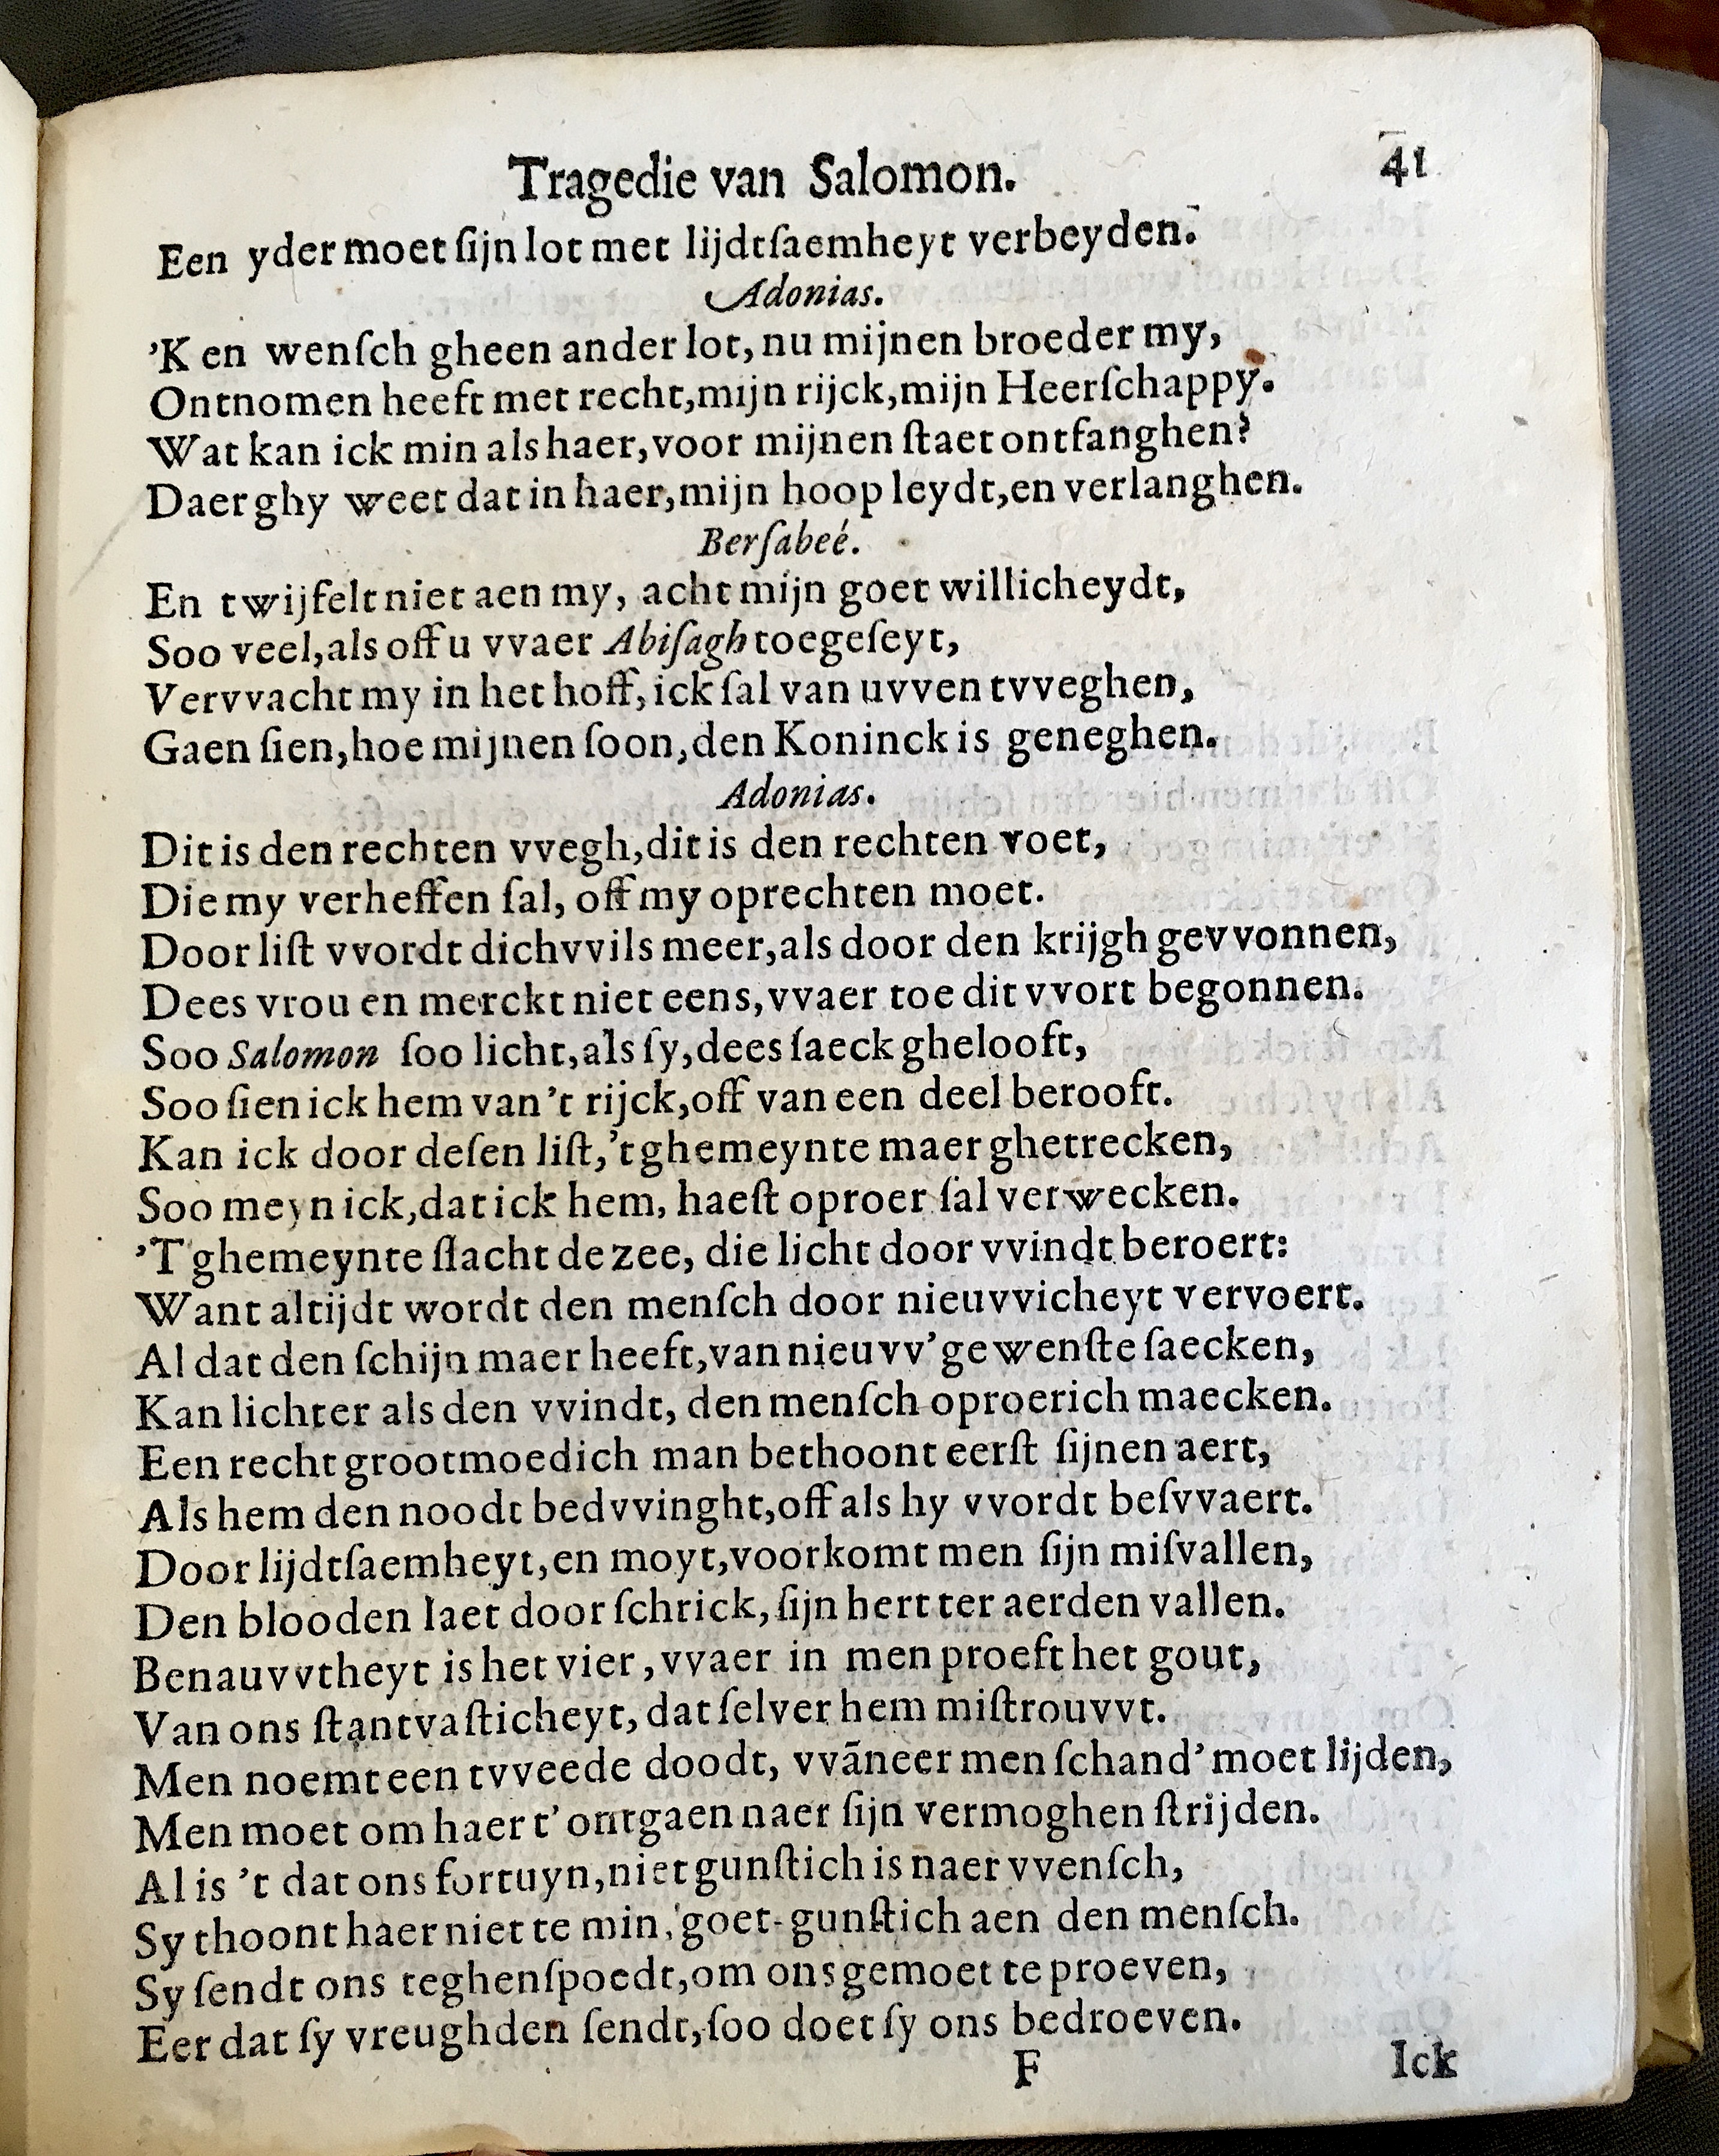 Tragedie van Salomon. 41
Een yder moet ſijn lot met lijdtſaemheyt verbeyden.
Adonias.
’K en wenſch gheen ander lot, nu mijnen broeder my,
Ontnomen heeft met recht, mijn rijck, mijn Heerſchappy.
Wat kan ick min als haer, voor mijnen ſtaet ontfanghen?
Daer ghy weet dat in haer, mijn hoop leydt, en verlanghen.
Berſabeé.
En twijfelt niet aen my, acht mijn goet willicheydt,
Soo veel, als off u vvaer Abiſagh toegeſeyt,
Vervvacht my in het hoff, ick ſal van uvven tvveghen,
Gaen ſien, hoe mijnen ſoon, den Koninck is geneghen.
Adonias.
Dit is den rechten vvegh, dit is den rechten voet,
Die my verheffen ſal, off my oprechten moet.
Door liſt vvordt dichvvils meer, als door den krijgh gevvonnen,
Dees vrou en merckt niet eens, vvaer toe dit vvort begonnen.
Soo Salomon ſoo licht, als ſy, dees ſaeck ghelooft,
Soo ſien ick hem van’t rijck, off van een deel berooft.
Kan ick door deſen liſt, ’t ghemeynte maer ghetrecken,
Soo meyn ick, dat ick hem, haeſt oproer ſal verwecken.
’T ghemeynte ſlacht de zee, die licht door vvindt beroert:
Want altijdt wordt den menſch door nieuvvicheyt vervoert.
Al dat den ſchijn maer heeft, van nieuvv’ gewenſte ſaecken,
Kan lichter als den vvindt, den menſch oproerich maecken.
Een recht grootmoedich man bethoont eerſt ſijnen aert,
Als hem den noodt bedvvinght, off als hy vvordt beſvvaert.
Door lijdtſaemheyt, en moyt, voorkomt men ſijn miſvallen,
Den blooden laet door ſchrick, ſijn hert ter aerden vallen.
Benauvvtheyt is het vier, vvaer in men proeft het gout,
Van ons ſtantvaſticheyt, dat ſelver hem miſtrouvvt.
Men noemt een tvveede doodt, vvāneer men ſchand’ moet lijden,
Men moet om haer t’ ontgaen naer ſijn vermoghen ſtrijden.
Al is ’t dat ons fortuyn, niet gunſtich is naer vvenſch,
Sy thoont haer niet te min, goet-gunſtich aen den menſch.
Sy ſendt ons teghenſpoedt, om ons gemoet te proeven,
Eer dat ſy vreughden ſendt, ſoo doet ſy ons bedroeven.
F Ick